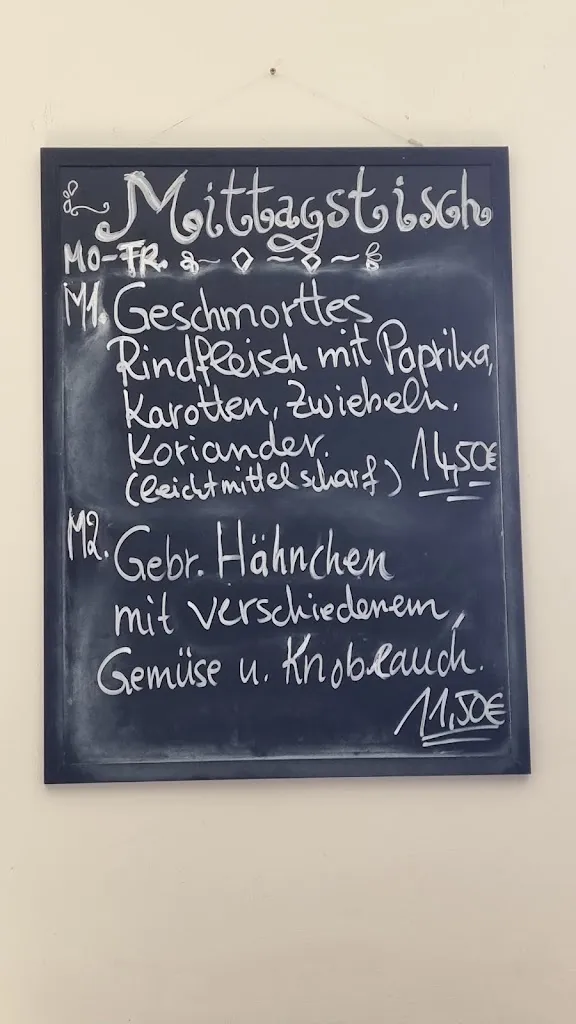 Mittagstisch
MO-FR.
M1. Geschmorttes
Rindfleisch mit Paprika,
Karotten, Zwiebeln,
Koriander.
(leicht mittel scharf) 14,50€
M2. Gebr. Hähnchen
mit verschiedenem,
Gemüse u. Knoblauch.
11,50€